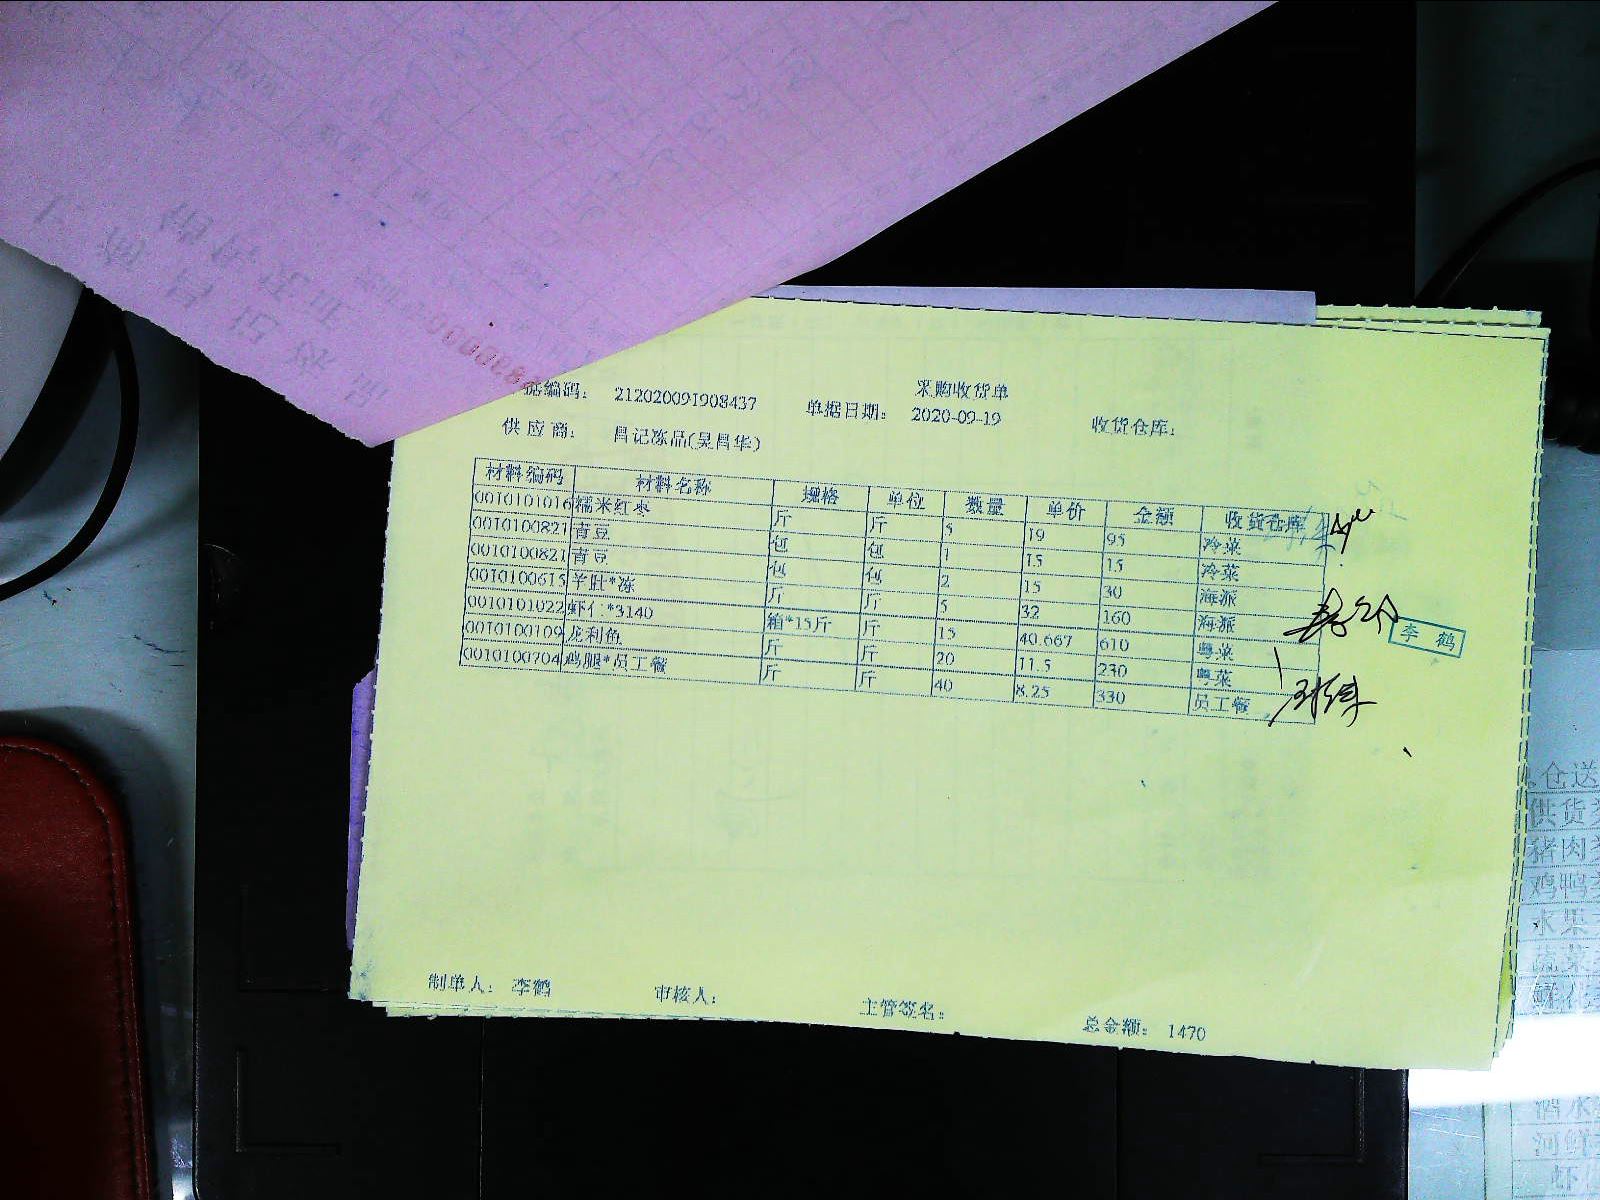 采购收货单
据编码： 212020091908437 单据日期： 2020-09-19 收货仓库：
供应商： 昌记冻品(吴昌华)
材料编码 材料名称 规格 单位 数量 单价 金额 收货仓库
0010101016 糯米红枣 斤 斤 5 19 95 冷菜
0010100821 青豆 包 包 1 15 15 冷菜
0010100821 青豆 包 包 2 15 30 海派
0010100615 羊肚*冻 斤 斤 5 32 160 海派
0010101022 虾仁*3140 箱*15斤 斤 15 40.667 610 粤菜
0010100109 龙利鱼 斤 斤 20 11.5 230 粤菜
0010100704 鸡腿*员工餐 斤 斤 40 8.25 330 员工餐
李鹤
制单人： 李鹤 审核人： 主管签名： 总金额： 1470
仓送
供货
猪肉
鸡鸭
水果
蔬菜
酒水
河鲜
虾